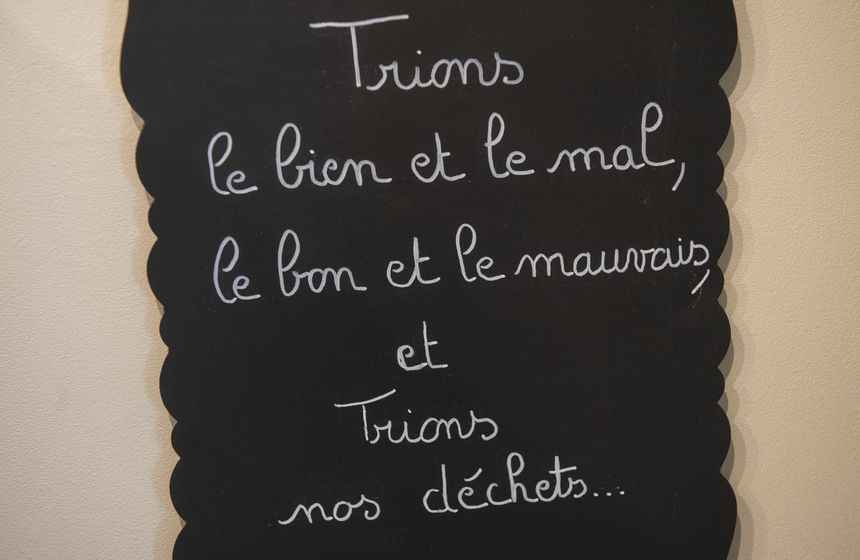 Trions
le bien et le mal,
le bon et le mauvais,
et
Trions
nos déchets...